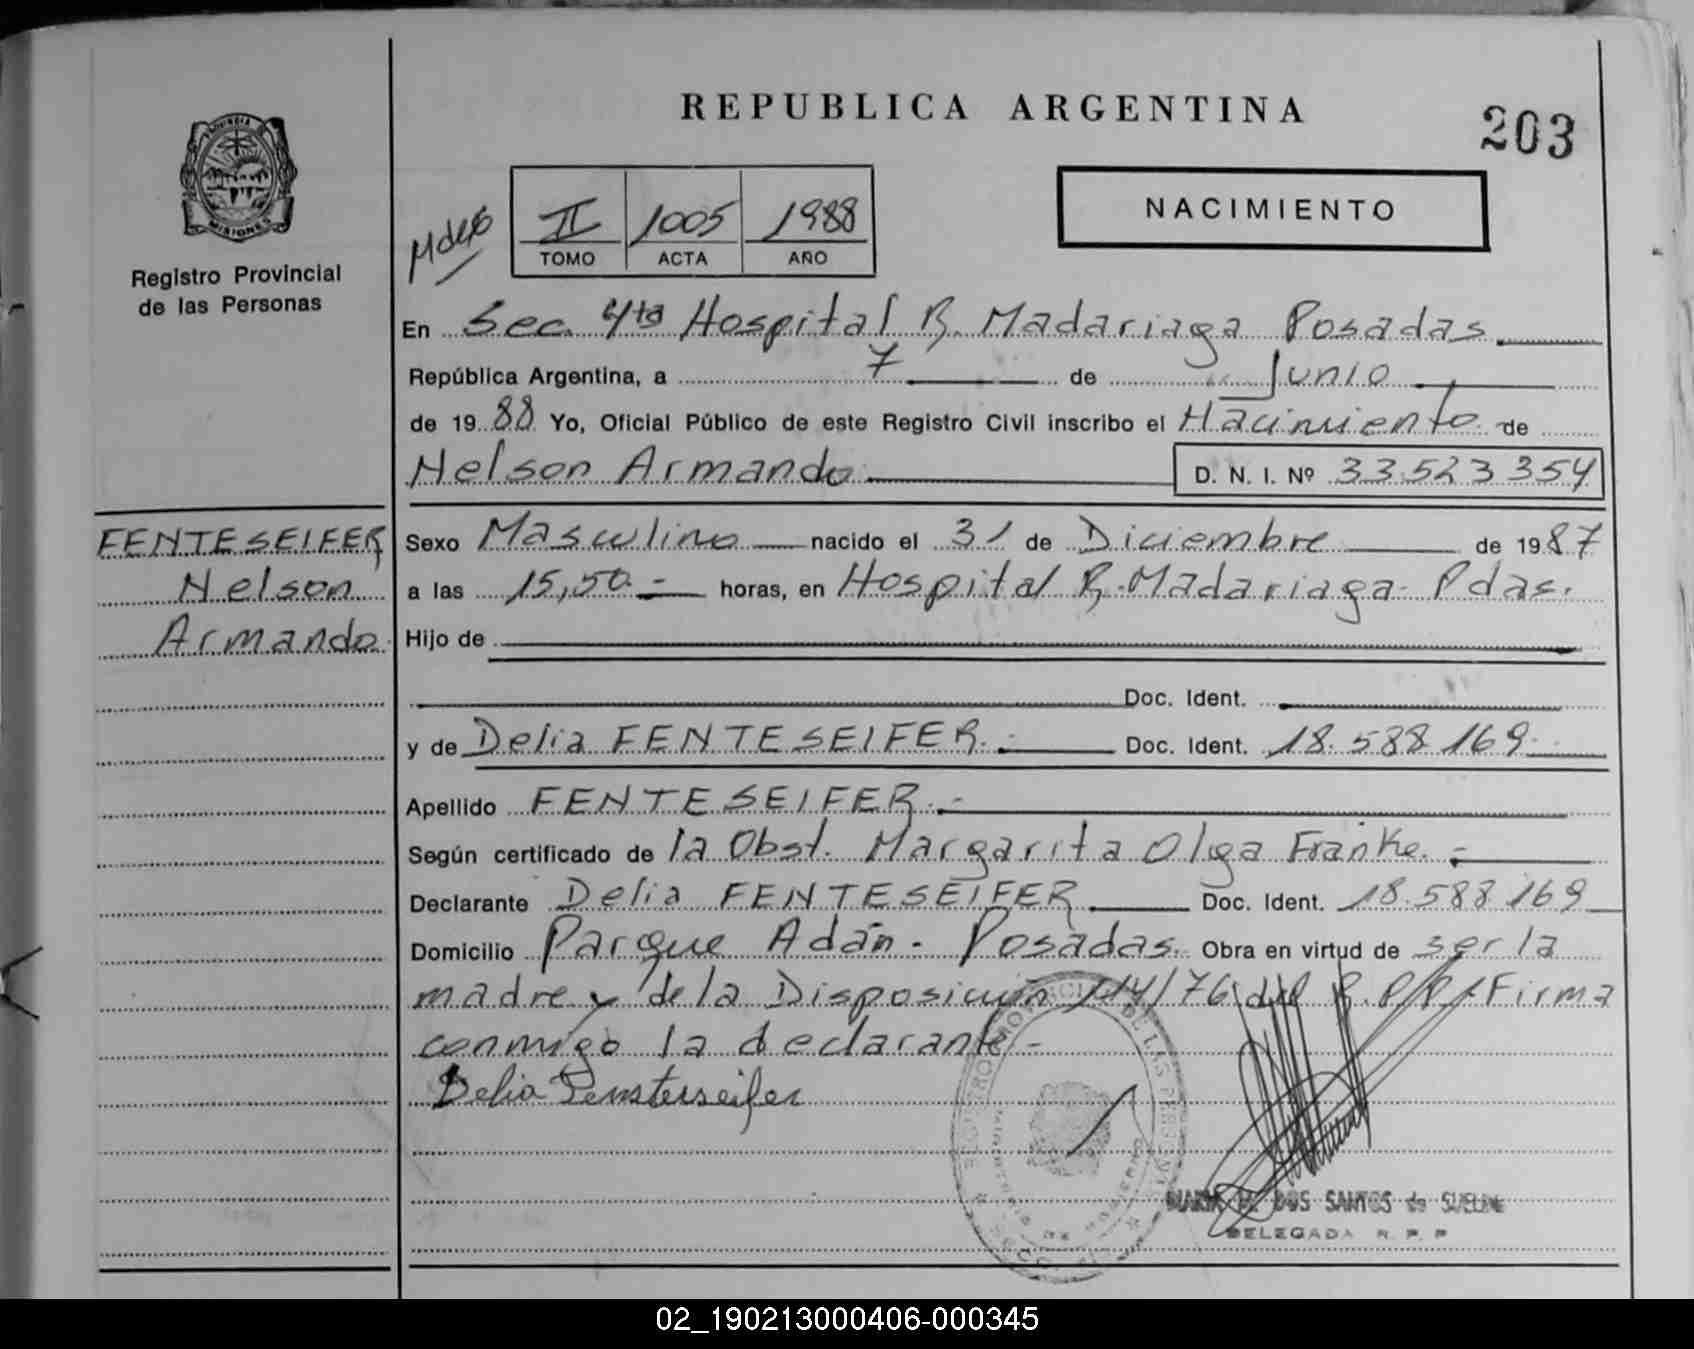 REPUBLICA ARGENTINA
203
PROVINCIA DE
MISIONES
Registro Provincial
de las Personas
II 1005 1988
TOMO ACTA AÑO
NACIMIENTO
En Sec. 4ta Hospital R. Madariaga Posadas
República Argentina, a 7 de Junio
de 1988 Yo, Oficial Público de este Registro Civil inscribo el Nacimiento de
Nelson Armando D. N. I. Nº 33.523.354
FENTESEIFER
Nelson
Armando
Sexo Masculino nacido el 31 de Diciembre de 1987
a las 15,50.- horas, en Hospital R. Madariaga- Pdas.
Hijo de
Doc. Ident.
y de Delia FENTESEIFER.- Doc. Ident. 18.588.169.-
Apellido FENTESEIFER.-
Según certificado de la Obst. Margarita Olga Franke.-
Declarante Delia FENTESEIFER Doc. Ident. 18.588.169
Domicilio Parque Adán - Posadas. Obra en virtud de ser la
madre y de la Disposición 114/76 del R.P.P. Firma
conmigo la declarante.-
Delia Fensterseifer
DOS SANTOS de
DELEGADA R. P. P
02_190213000406-000345